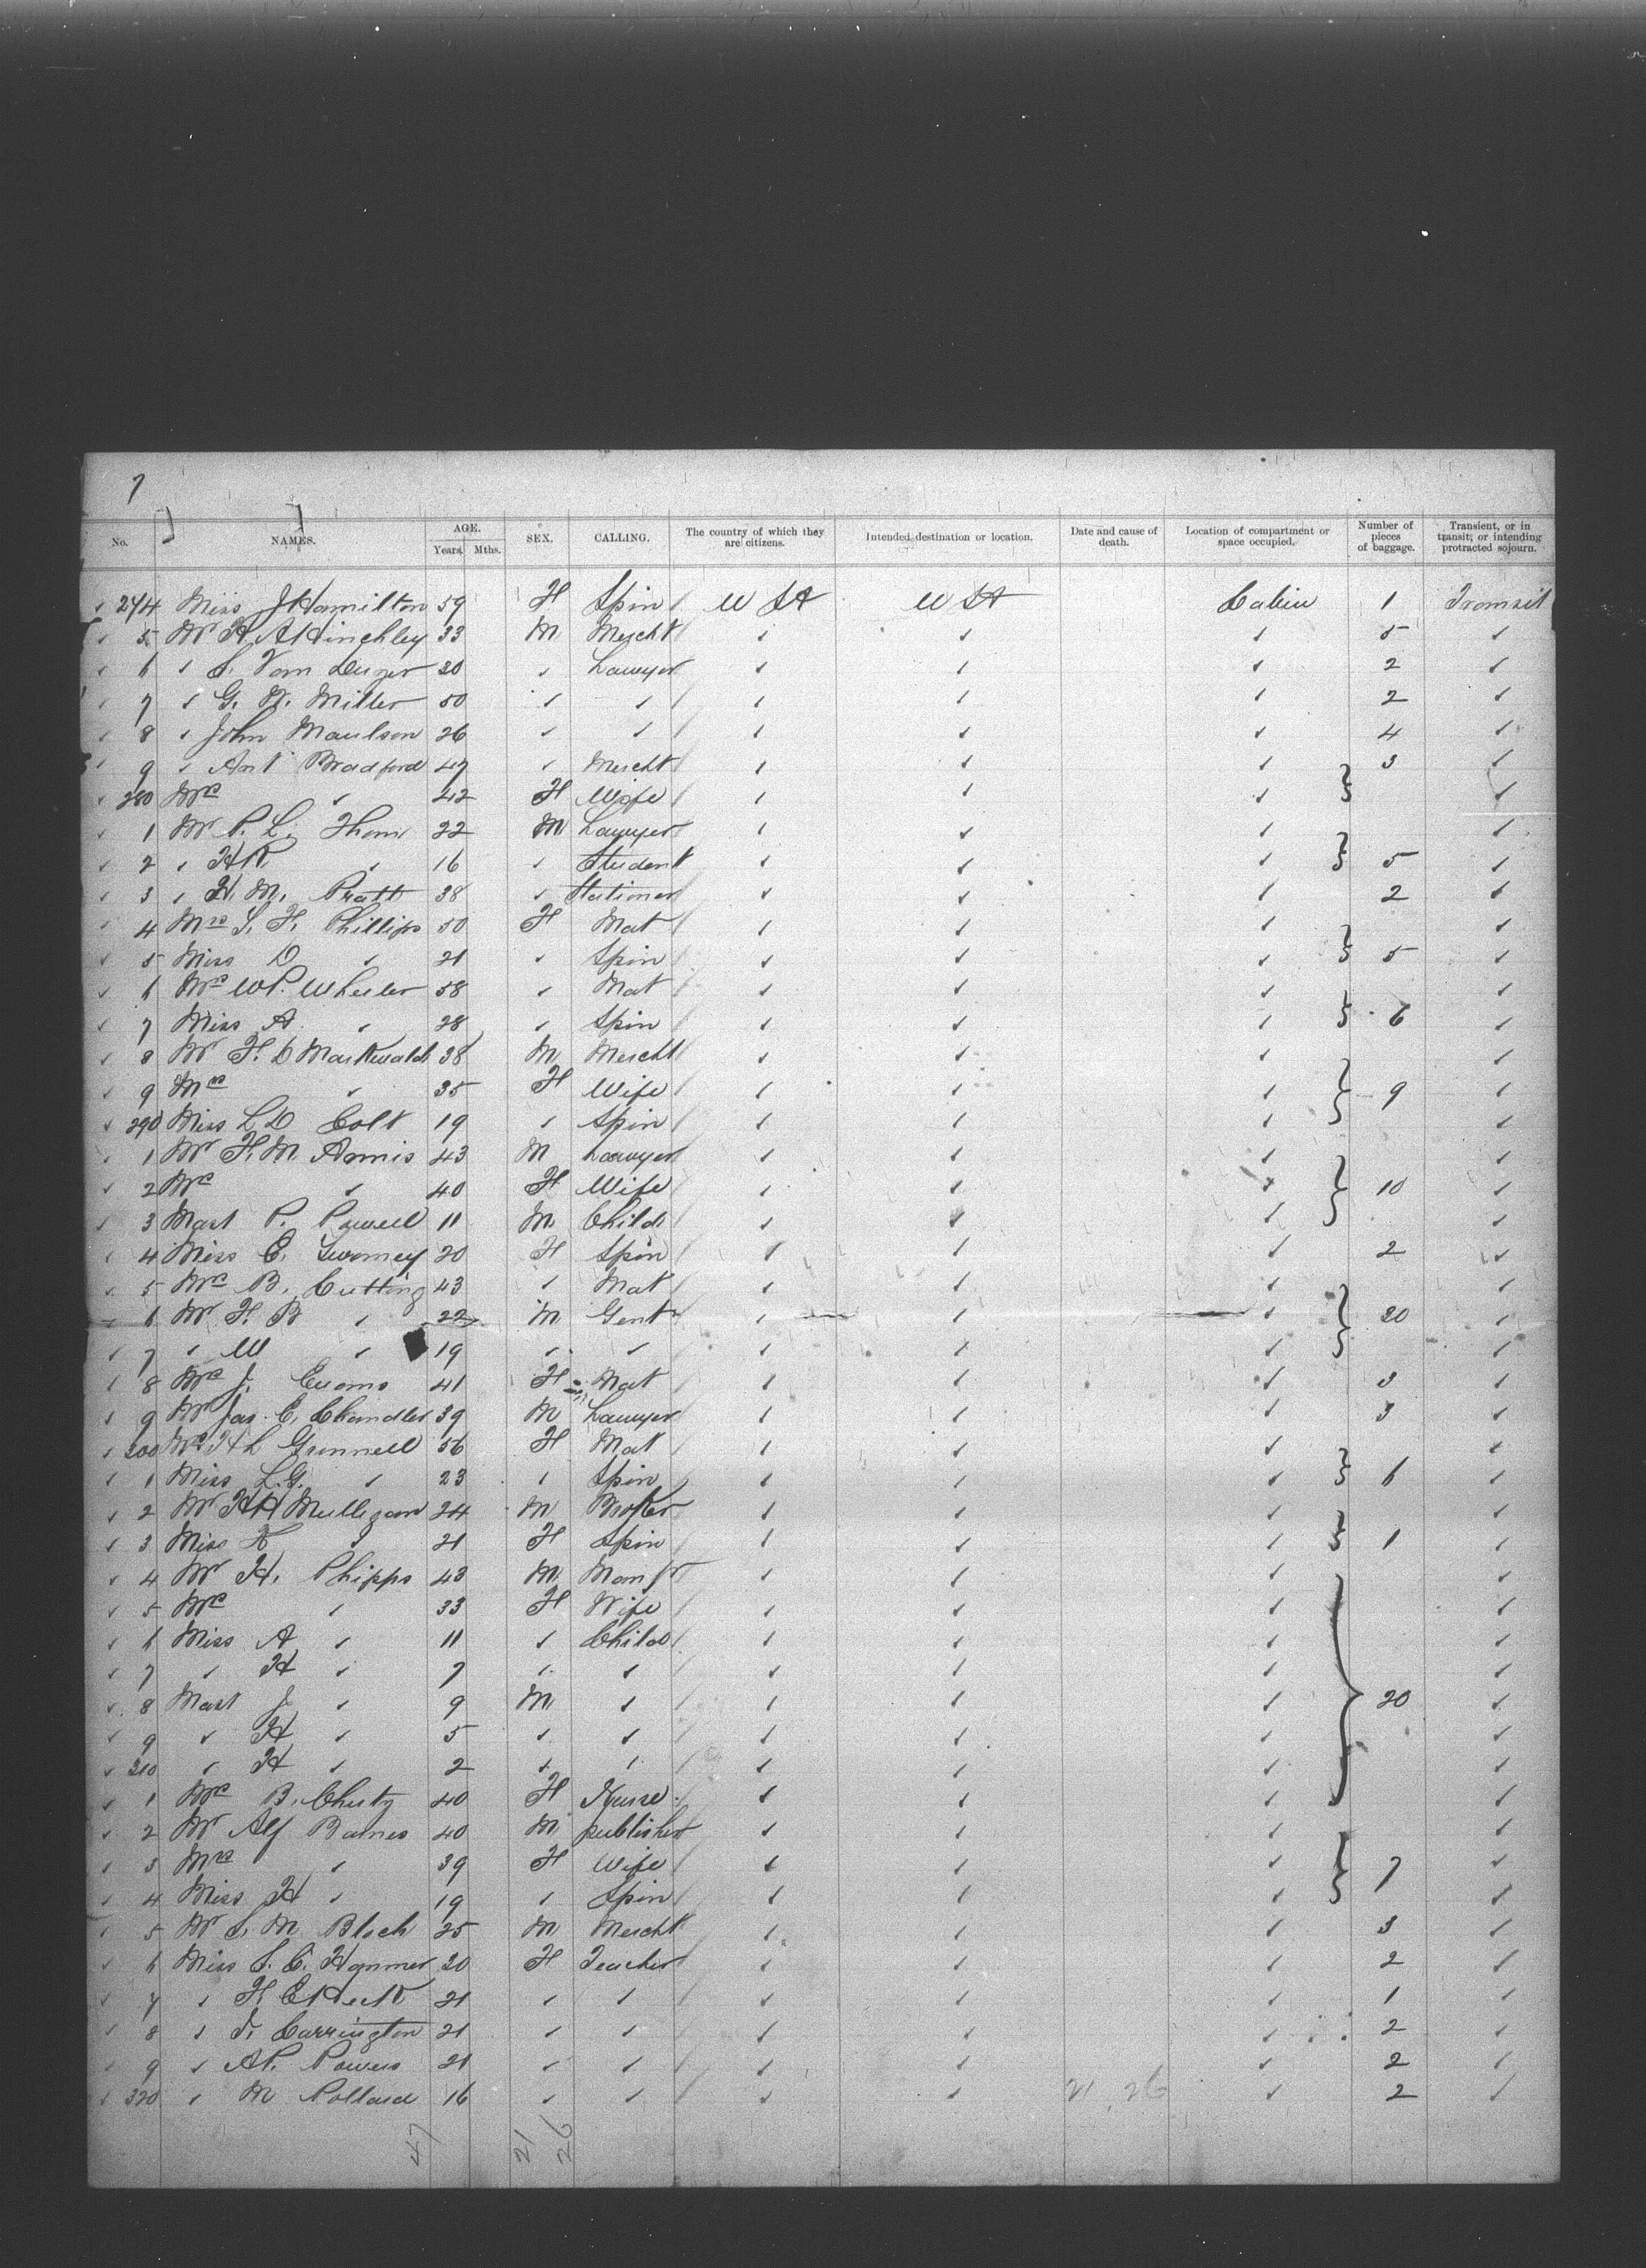 7
No. NAMES. AGE. Years. Mths. SEX. CALLING. The country of which they are citizens. Intended destination or location. Date and cause of death. Location of compartment or space occupied. Number of pieces of baggage. Transient, or in transit, or intending protracted sojourn.
274 Miss J Hamilton 59 F Spin U St U St Cabin 1 Transit
5 Mr H. A Hinchley 33 M Mercht ✓ ✓ ✓ 5 ✓
6 ✓ S. Van Duzer 30 ✓ Lawyer ✓ ✓ ✓ 2 ✓
7 ✓ G. N. Miller 50 ✓ ✓ ✓ ✓ ✓ 2 ✓
8 ✓ John Maulson 26 ✓ ✓ ✓ ✓ ✓ 4 ✓
9 ✓ Bradford 47 ✓ Mercht ✓ ✓ ✓ 3 ✓
280 Mrs ✓ 42 F Wife ✓ ✓ ✓ ✓
1 Mr P. L. Thom 22 M Lawyer ✓ ✓ ✓ ✓
2 ✓ ✓ 16 ✓ Student ✓ ✓ ✓ 5 ✓
3 ✓ H. M. Pratt 38 ✓ Stationer ✓ ✓ ✓ 2 ✓
4 Mrs S. F. Phillips 50 F Mat ✓ ✓ ✓ ✓
5 Miss D ✓ 21 ✓ Spin ✓ ✓ ✓ 5 ✓
6 Mrs W P. Wheeler 58 ✓ Mat ✓ ✓ ✓ ✓
7 Miss A ✓ 28 ✓ Spin ✓ ✓ ✓ 6 ✓
8 Mr F. D Markwald 38 M Mercht ✓ ✓ ✓ ✓
9 Mrs ✓ 35 F Wife ✓ ✓ ✓ 9 ✓
290 Miss L D Colt 19 ✓ Spin ✓ ✓ ✓ ✓
1 Mr F. M. Annis 43 M Lawyer ✓ ✓ ✓ ✓
2 Mrs ✓ 40 F Wife ✓ ✓ ✓ 10 ✓
3 Mast P. Powell 11 M Child ✓ ✓ ✓ ✓
4 Miss E. Twomey 20 F Spin ✓ ✓ ✓ 2 ✓
5 Mrs B. Cutting 43 ✓ Mat ✓ ✓ ✓ ✓
6 Mr F. B ✓ 22 M Gent ✓ ✓ ✓ 20 ✓
7 ✓ W ✓ 19 ✓ ✓ ✓ ✓ ✓ ✓
8 Mrs J. Evans 41 F Mat ✓ ✓ ✓ 3 ✓
9 Mr Jas. E. Chandler 39 M Lawyer ✓ ✓ ✓ 3 ✓
300 Mrs H L Grinnell 56 F Mat ✓ ✓ ✓ ✓
1 Miss L. G. ✓ 23 ✓ Spin ✓ ✓ ✓ 6 ✓
2 Mr H H Mulligan 24 M Broker ✓ ✓ ✓ ✓
3 Miss K ✓ 21 F Spin ✓ ✓ ✓ 1 ✓
4 Mr H. Phipps 43 M Manfr ✓ ✓ ✓ ✓
5 Mrs ✓ 33 F Wife ✓ ✓ ✓ ✓
6 Miss A ✓ 11 ✓ Child ✓ ✓ ✓ ✓
7 ✓ H ✓ 7 ✓ ✓ ✓ ✓ ✓ ✓
8 Mast J ✓ 9 M ✓ ✓ ✓ ✓ 20 ✓
9 ✓ H ✓ 5 ✓ ✓ ✓ ✓ ✓ ✓
310 ✓ H ✓ 2 ✓ ✓ ✓ ✓ ✓ ✓
1 Mrs B. 40 F Nurse ✓ ✓ ✓ ✓
2 Mr Alf Barnes 40 M publisher ✓ ✓ ✓ ✓
3 Mrs ✓ 39 F Wife ✓ ✓ ✓ 7 ✓
4 Miss H ✓ 19 ✓ Spin ✓ ✓ ✓ ✓
5 Mr S. M Bloch 25 M Mercht ✓ ✓ ✓ 3 ✓
6 Miss S. C. Hanmer 30 F Teacher ✓ ✓ ✓ 2 ✓
7 ✓ F. E 21 ✓ ✓ ✓ ✓ ✓ 1 ✓
8 ✓ J. Carrington 21 ✓ ✓ ✓ ✓ ✓ 2 ✓
9 ✓ A P. Powers 21 ✓ ✓ ✓ ✓ ✓ 2 ✓
320 ✓ M Pollard 16 ✓ ✓ ✓ ✓ 21 26 ✓ 2 ✓
47 21 26